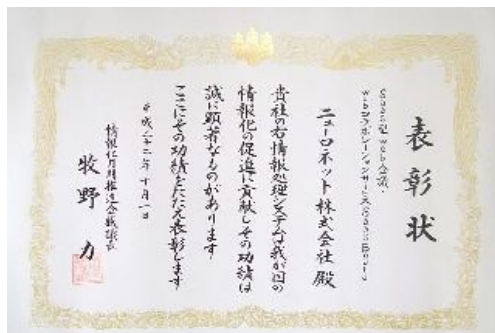 表彰状
SaaS型Web会議・
WebコラボレーションサービスSaasBoard
ニューロネット株式会社 殿
貴社の右情報処理システムは我が国の
情報化の促進に貢献しその功績は
誠に顕著なものがあります
ここにその功績をたたえ表彰します
平成二十二年十月一日
情報化月間推進会議議長
牧野 力